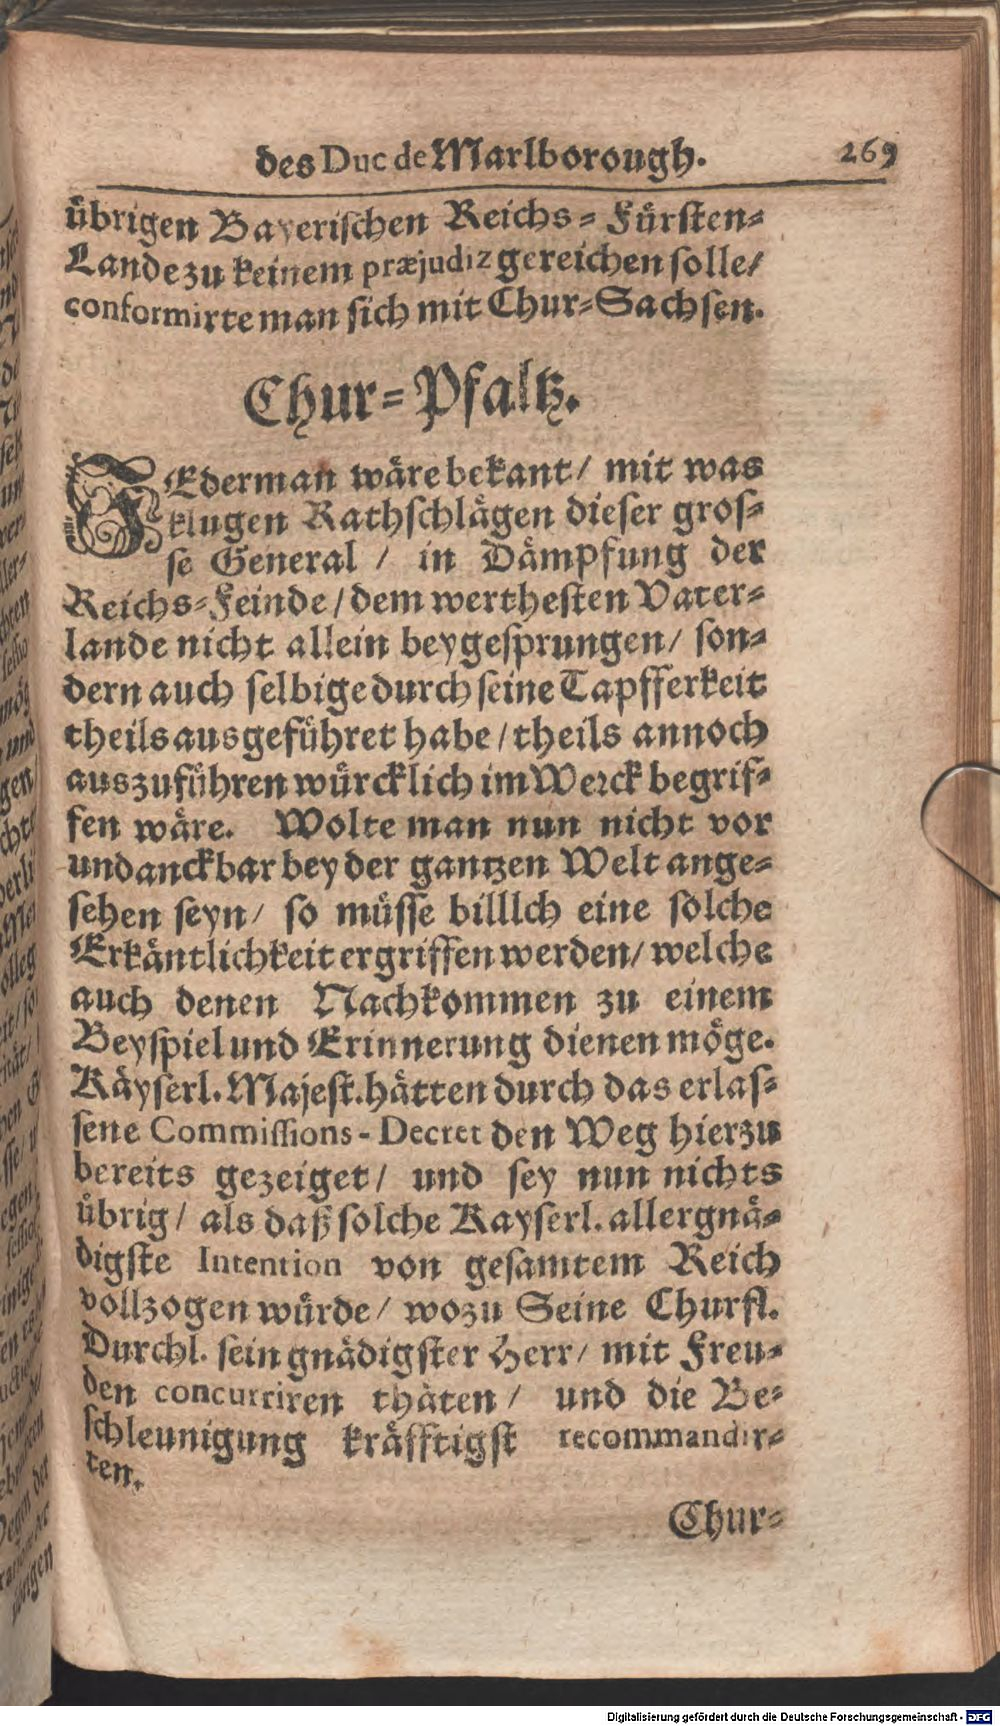 des Duc de Marlborough. 269
übrigen Bayerischen Reichs-Fürsten-
Lande zu keinem præjudiz gereichen solle/
conformirte man sich mit Chur-Sachsen.
Chur-Pfaltz.
JEderman wäre bekant/ mit was
klugen Rathschlägen dieser gros-
se General / in Dämpfung der
Reichs-Feinde / dem werthesten Vater-
lande nicht allein beygesprungen/ son-
dern auch selbige durch seine Tapfferkeit
theils ausgeführet habe / theils annoch
auszuführen würcklich im Werck begrif-
fen wäre. Wolte man nun nicht vor
undanckbar bey der gantzen Welt ange-
sehen seyn/ so müsse billlch eine solche
Erkäntlichkeit ergriffen werden/ welche
auch denen Nachkommen zu einem
Beyspiel und Erinnerung dienen möge.
Käyserl. Majest. hätten durch das erlas-
sene Commissions-Decret den Weg hierzu
bereits gezeiget/ und sey nun nichts
übrig / als daß solche Kayserl. allergnä-
digste Intention von gesamtem Reich
vollzogen würde/ wozu Seine Churfl.
Durchl. sein gnädigster Herr/ mit Freu-
den concurriren thäten / und die Be-
schleunigung kräfftigst recommandir-
ten.
Chur-
Digitalisierung gefördert durch die Deutsche Forschungsgemeinschaft - DFG